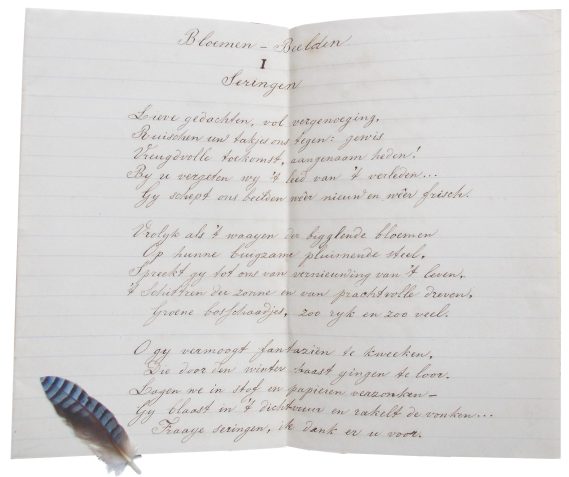 Bloemen – Beelden
I
Seringen
Lieve gedachten, vol vergenoeging,
Ruischen uw takjes ons tegen: gewis
Vreugdvolle toekomst, aangenaam heden!
By u vergeten wy 't leed van 't verleden...
Gy schept ons beelden wêer nieuw en wêer frisch.
Vrolyk als 't waayen der bigglende bloemen
Op hunne buigzame pluimende steel,
Spreekt gy tot ons van vernieuwing van 't leven,
't Schittren der zonne en van prachtvolle dreven,
Groene boschaadjes, zoo ryk en zoo veel.
O gy vermoogt fantaziën te kweeken,
Die door den winter haast gingen te loor.
Lagen we in stof en papieren verzonken –
Gy blaast in 't dichtvuur en rakelt de vonken...
Fraaye seringen, ik dank er u voor.